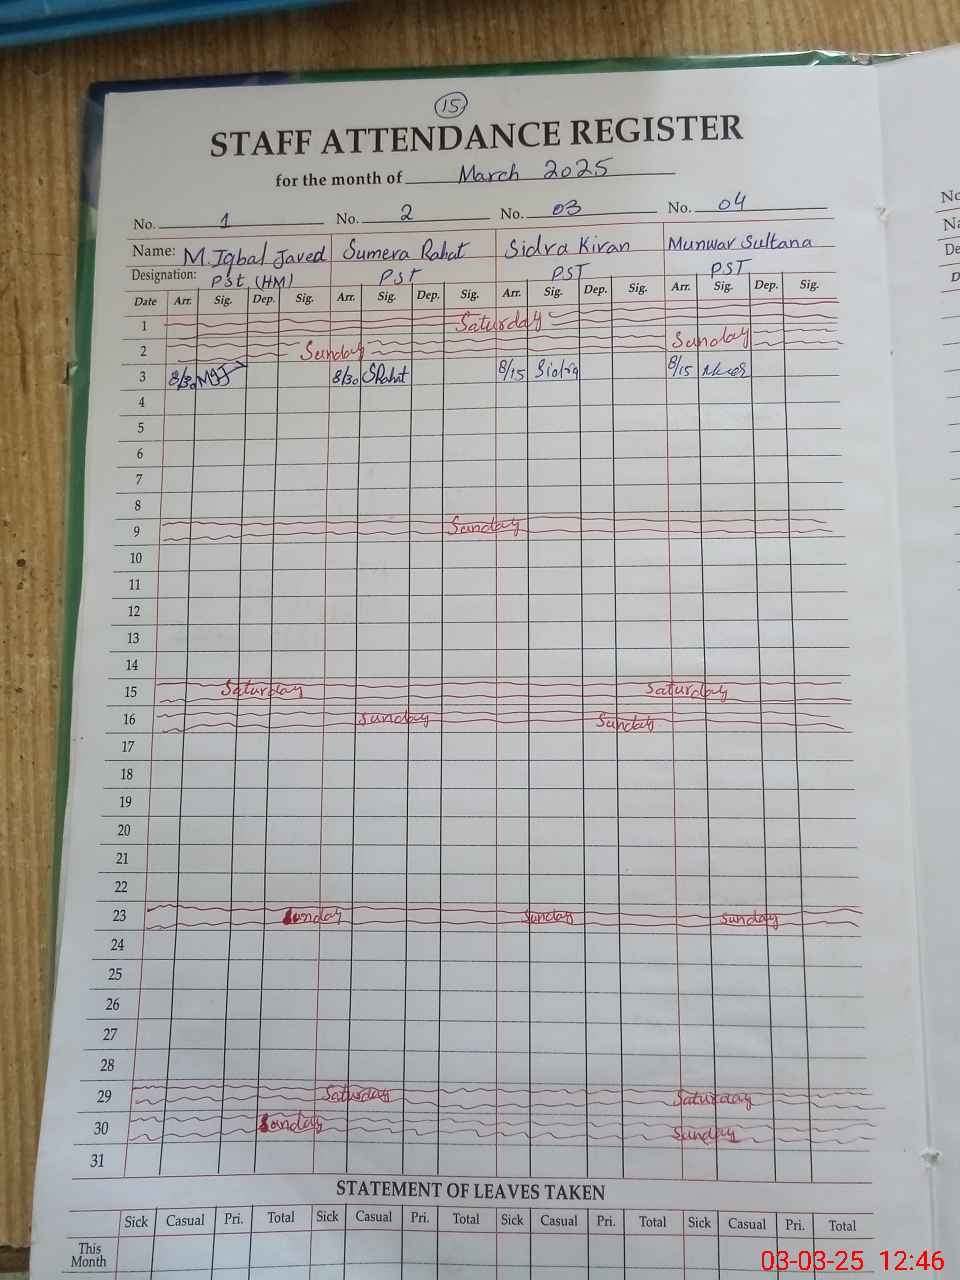 15
STAFF ATTENDANCE REGISTER
for the month of March 2025
No. 1 No. 2 No. 03 No. 04
Name: M. Iqbal Javed Sumera Rahat Sidra Kiran Munwar Sultana
Designation: PSt (HM) PST PST PST
Date Arr. Sig. Dep. Sig. Arr. Sig. Dep. Sig. Arr. Sig. Dep. Sig. Arr. Sig. Dep. Sig.
1 Saturday
2 Sunday Sunday
3 8/30 MIJ 8/30 SRahat 8/15 Sidra 8/15
4
5
6
7
8
9 Sunday
10
11
12
13
14
15 Saturday Saturday
16 Sunday Sunday
17
18
19
20
21
22
23 Sunday Sunday Sunday
24
25
26
27
28
29 Saturday Saturday
30 Sunday Sunday
31
STATEMENT OF LEAVES TAKEN
Sick Casual Pri. Total Sick Casual Pri. Total Sick Casual Pri. Total Sick Casual Pri. Total
This
Month
03-03-25 12:46